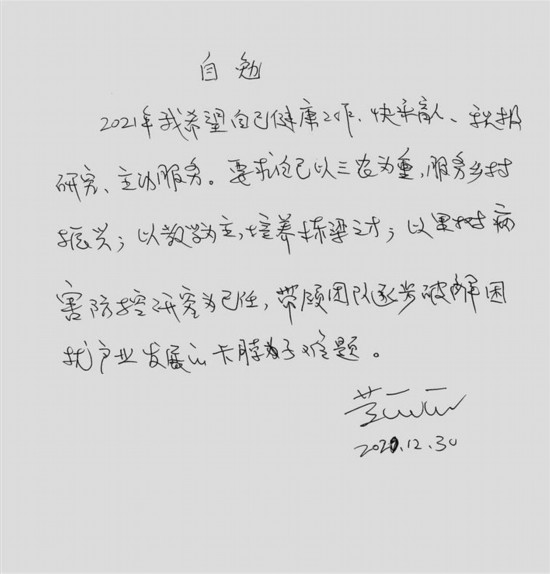 自勉
2021年我希望自己健康工作、快乐育人、积极
研究、主动服务。要求自己以三农为重,服务乡村
振兴;以教学为主,培养栋梁之才;以果树病
害防控研究为己任,带领团队逐步破解困
扰产业发展的卡脖子难题。
2020.12.30